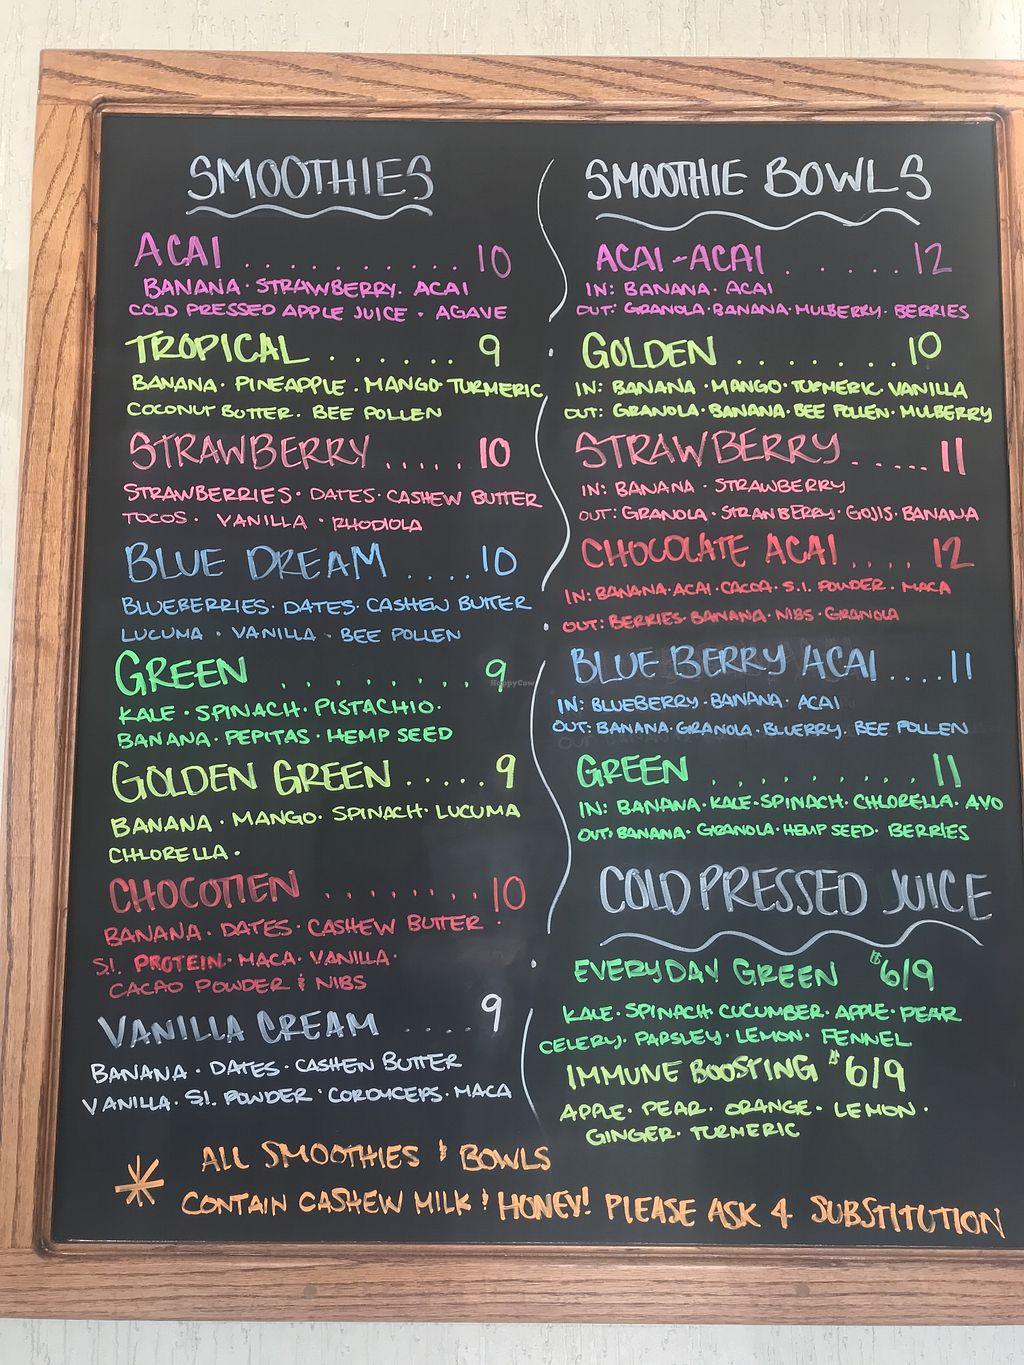 SMOOTHIES
ACAI . . . . . . . . . . . 10
BANANA · STRAWBERRY · ACAI
COLD PRESSED APPLE JUICE · AGAVE
TROPICAL . . . . . . 9
BANANA · PINEAPPLE · MANGO · TURMERIC
COCONUT BUTTER · BEE POLLEN
STRAWBERRY . . . . . 10
STRAWBERRIES · DATES · CASHEW BUTTER
TOCOS · VANILLA · RHODIOLA
BLUE DREAM . . . . 10
BLUEBERRIES · DATES · CASHEW BUTTER
LUCUMA · VANILLA · BEE POLLEN
GREEN . . . . . . . . 9
KALE · SPINACH · PISTACHIO ·
BANANA · PEPITAS · HEMP SEED
GOLDEN GREEN . . . . . 9
BANANA · MANGO · SPINACH · LUCUMA
CHLORELLA ·
CHOCOTIEN . . . . . . . . 10
BANANA · DATES · CASHEW BUTTER ·
S.I. PROTEIN · MACA · VANILLA ·
CACAO POWDER & NIBS
VANILLA CREAM . . . . 9
BANANA · DATES · CASHEW BUTTER
VANILLA · S.I. POWDER · CORDYCEPS · MACA
SMOOTHIE BOWLS
ACAI-ACAI . . . . . . 12
IN: BANANA · ACAI
OUT: GRANOLA · BANANA · MULBERRY · BERRIES
GOLDEN . . . . . . . . 10
IN: BANANA · MANGO · TURMERIC · VANILLA
OUT: GRANOLA · BANANA · BEE POLLEN · MULBERRY
STRAWBERRY . . . . . 11
IN: BANANA · STRAWBERRY
OUT: GRANOLA · STRAWBERRY · GOJIS · BANANA
CHOCOLATE ACAI . . . . 12
IN: BANANA · ACAI · CACOA · S.I. POWDER · MACA
OUT: BERRIES · BANANA · NIBS · GRANOLA
BLUE BERRY ACAI . . . . 11
IN: BLUEBERRY · BANANA · ACAI
OUT: BANANA · GRANOLA · BLUERRY · BEE POLLEN
GREEN . . . . . . . . . 11
IN: BANANA · KALE · SPINACH · CHLORELLA · AVO
OUT: BANANA · GRANOLA · HEMP SEED · BERRIES
COLD PRESSED JUICE
EVERYDAY GREEN $6/9
KALE · SPINACH CUCUMBER · APPLE · PEAR
CELERY · PARSLEY · LEMON · FENNEL
IMMUNE BOOSTING $6/9
APPLE · PEAR · ORANGE · LEMON ·
GINGER · TURMERIC
* ALL SMOOTHIES & BOWLS
CONTAIN CASHEW MILK & HONEY! PLEASE ASK 4 SUBSTITUTION
HappyCow